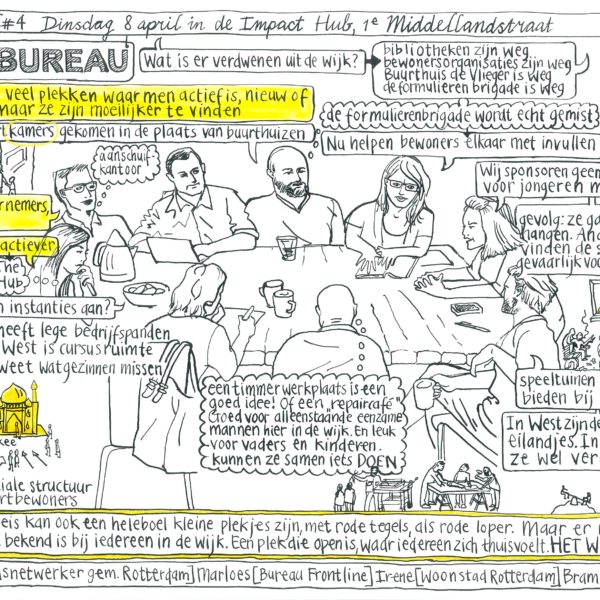 #4 Dinsdag 8 april in de Impact Hub, 1e Middellandstraat
BUREAU
Wat is er verdwenen uit de wijk?
bibliotheken zijn weg
bewonersorganisaties zijn weg
Buurthuis de Vlieger is weg
de formulieren brigade is weg
veel plekken waar men actief is, nieuw of
maar ze zijn moeilijker te vinden
kamers gekomen in de plaats van buurthuizen
de formulierenbrigade wordt echt gemist
Nu helpen bewoners elkaar met invullen
aanschuif
kantoor
Wij sponsoren geen
voor jongeren m
nemers
actiever
he
Hub
gevolg: ze ga
hangen. An
vinden de s
gevaarlijk voo
n instanties aan?
heeft lege bedrijfspanden
West is cursusruimte
weet wat gezinnen missen
een timmerwerkplaats is een
goed idee! Of een "repaircafé"
Goed voor alleenstaande eenzame
mannen hier in de wijk. En leuk
voor vaders en kinderen.
kunnen ze samen iets DOEN
speeltuinen
bieden bij
In West zijn de
eilandjes. In
ze wel ver
kee
iale structuur
rtbewoners
eis kan ook een heleboel kleine plekjes zijn, met rode tegels, als rode loper. Maar er
bekend is bij iedereen in de wijk. Een plek die open is, waar iedereen zich thuisvoelt. HET W
snetwerker gem. Rotterdam] Marloes [Bureau Frontline] Irene [Woonstad Rotterdam] Bram